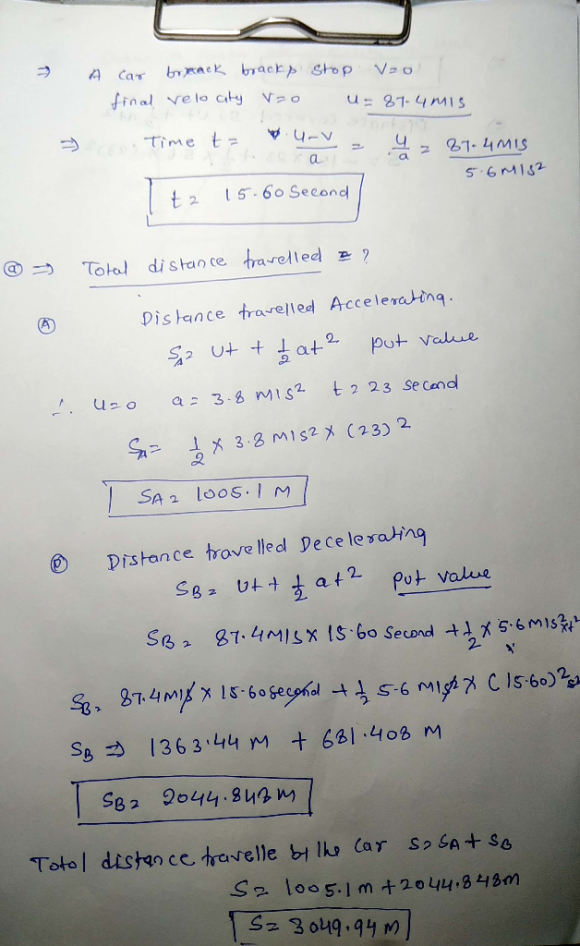 ⇒ A car break bracks stop V=0
final velocity V=0 u= 87.4 M/S
⇒ Time t = u-v/a = u/a = 87.4 M/S / 5.6 M/S2
t = 15.60 Second
ⓐ ⇒ Total distance travelled = ?
Ⓐ Distance travelled Accelerating.
SA= Ut + 1/2 at2 put value
∴ u=0 a= 3.8 M/S2 t= 23 Second
SA= 1/2 × 3.8 M/S2 × (23)2
SA= 1005.1 M
Distance travelled Decelerating
SB= Ut + 1/2 at2 put value
SB= 87.4 M/S × 15.60 Second + 1/2 × 5.6 M/S2 × t2
SB= 87.4 M/S × 15.60 Second + 1/2 5.6 M/S2 × (15.60)2 S2
SB ⇒ 1363.44 M + 681.408 M
SB= 2044.848 M
Total distance travelle by the car S= SA + SB
S= 1005.1 m + 2044.848m
S= 3049.94 M